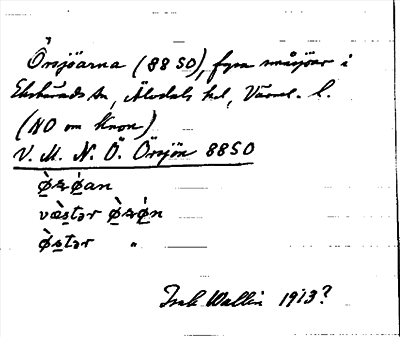 Örsjöarna (88 SO), fyra småsjöar i
Ekshärads sn, Älvdals hd, Värml. l.
(NO om Knon)
V. M. N. Ö. Örsjön 88SO
ø̀ꞩǿan
væ̀stər ø̀ꞩǿn
ø̀stər "
Isak Wallin 1913?